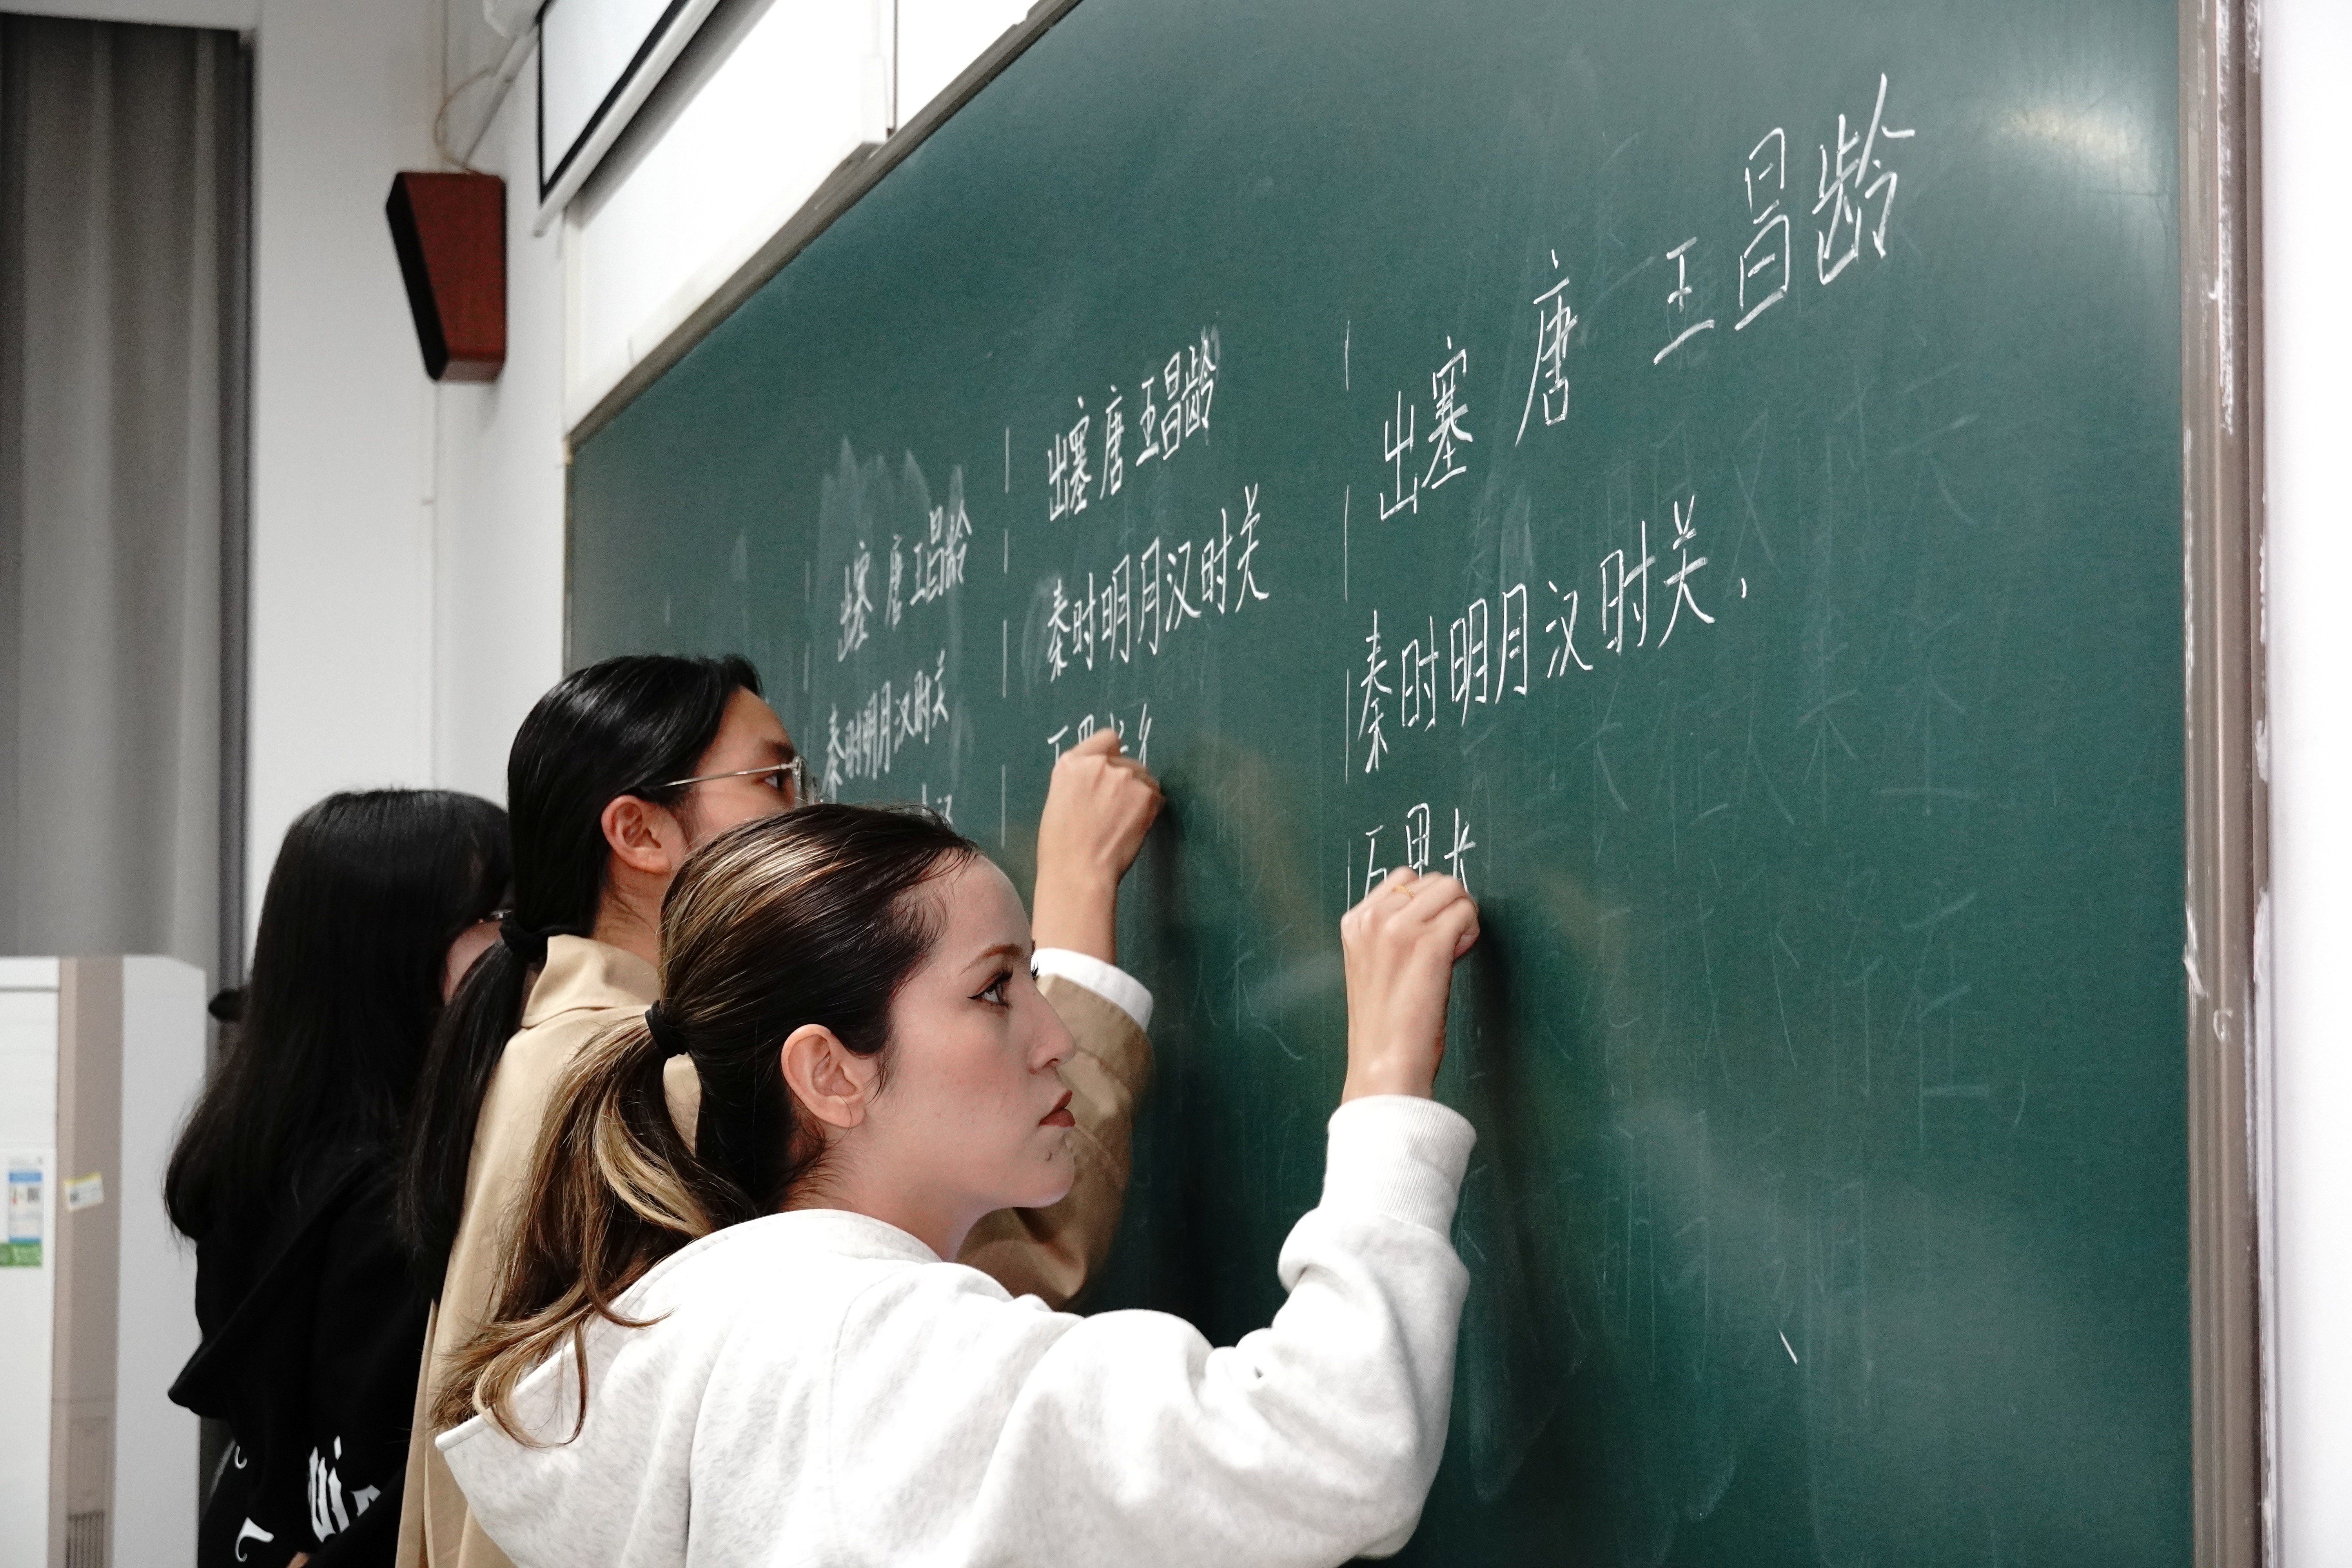 出塞 唐 王昌龄
秦时明月汉时关
出塞 唐 王昌龄
秦时明月汉时关
万里长
出塞 唐 王昌龄
秦时明月汉时关，
万里长